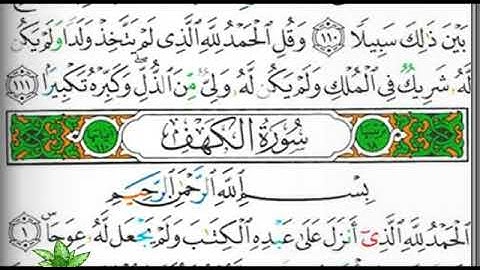 بَيْنَ ذَٰلِكَ سَبِيلًا ١١٠ وَقُلِ الْحَمْدُ لِلَّهِ الَّذِى لَمْ يَتَّخِذْ وَلَدًا وَلَمْ يَكُن
لَّهُۥ شَرِيكٌ فِى الْمُلْكِ وَلَمْ يَكُن لَّهُۥ وَلِىٌّ مِّنَ الذُّلِّ ۖ وَكَبِّرْهُ تَكْبِيرًا ١١١
سُورَةُ الْكَهْفِ
بِسْمِ اللَّهِ الرَّحْمَٰنِ الرَّحِيمِ
الْحَمْدُ لِلَّهِ الَّذِىٓ أَنزَلَ عَلَىٰ عَبْدِهِ الْكِتَٰبَ وَلَمْ يَجْعَل لَّهُۥ عِوَجَاۜ ١